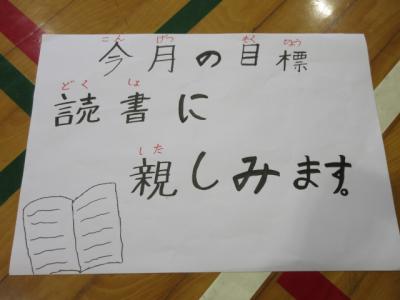 こん げつ もく ひょう
今月の目標
どく しょ
読書に
した
親しみます。